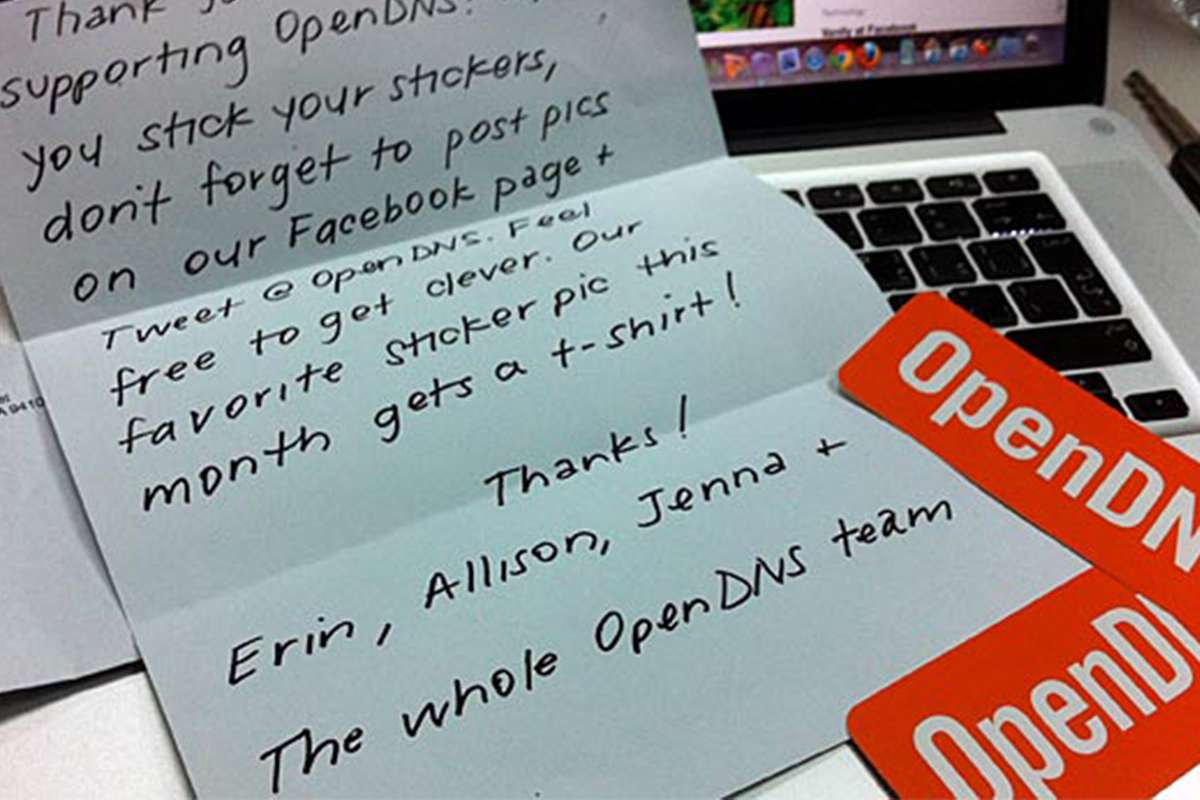 Thank
supporting OpenDNS.
you stick your stickers,
don't forget to post pics
on our Facebook page +
Tweet @ OpenDNS. Feel
free to get clever. Our
favorite sticker pic this
month gets a t-shirt!
Thanks!
Erin, Allison, Jenna +
The whole OpenDNS team
OpenDN
OpenD
Verity at Facebook